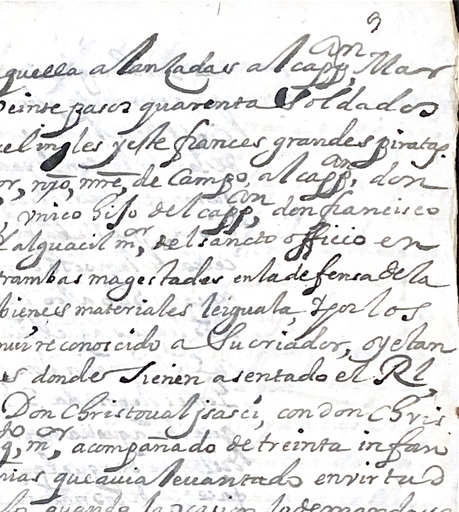 9
quella a lantadas al capp^an Mar
Veinte pasos quarenta Soldados
el ingles y este frances grandes piratas.
or, nr̃o, mr̃e, de Campo, al capp^an, don
, Vnico hijo del capp^an, don francisco
alguacil m^or, del sancto officio en
trambas magestades en la defensa de la
bienes materiales le iguala, y por los
mui reconoscido a Su criador, oyelan
es donde tienen asentado el Rl,
Don Christoual jsaci, con don Chris
m^or, acompañado de treinta infan
nias que auia leuantado en virtud
quando la